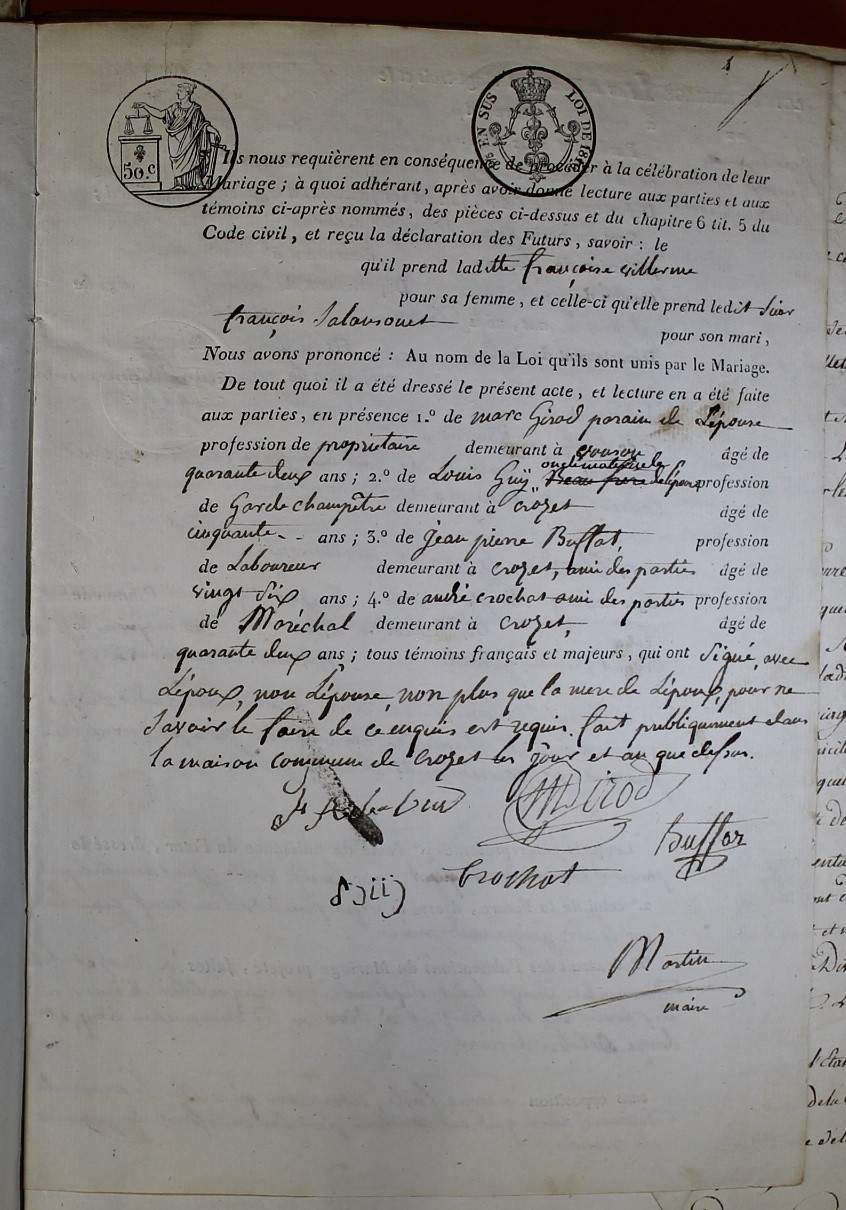 50.c
EN SUS LOI DE 1816
Ils nous requièrent en conséquence de procéder à la célébration de leur
Mariage ; à quoi adhérant, après avoir donné lecture aux parties et aux
témoins ci-après nommés, des pièces ci-dessus et du chapitre 6 tit. 5 du
Code civil, et reçu la déclaration des Futurs, savoir : le
qu'il prend laditte françoise villerme
pour sa femme, et celle-ci qu'elle prend ledit Sieur
françois
pour son mari,
Nous avons prononcé : Au nom de la Loi qu'ils sont unis par le Mariage.
De tout quoi il a été dressé le présent acte, et lecture en a été faite
aux parties, en présence 1.º de marc Girod parain de L'épouse
profession de propriétaire demeurant à âgé de
quarante deux ans ; 2.º de Louis Guÿ oncle maternel de lépouse profession
de Garde champêtre demeurant à crozet âgé de
cinquante - - ans ; 3.º de jean pierre Buffat, profession
de Laboureur demeurant à crozet, ami des parties âgé de
vingt six ans ; 4.º de andré crochat ami des parties profession
de Maréchal demeurant à crozet, âgé de
quarante deux ans ; tous témoins français et majeurs, qui ont signé, avec
L'époux, non L'épouse, non plus que la mere de L'époux, pour ne
savoir le faire de ce enquis est requis. fait publiquement dans
la maison commune de crozet les jour et an que dessus.
MGirod
buffat
Crochat
Martin
maire